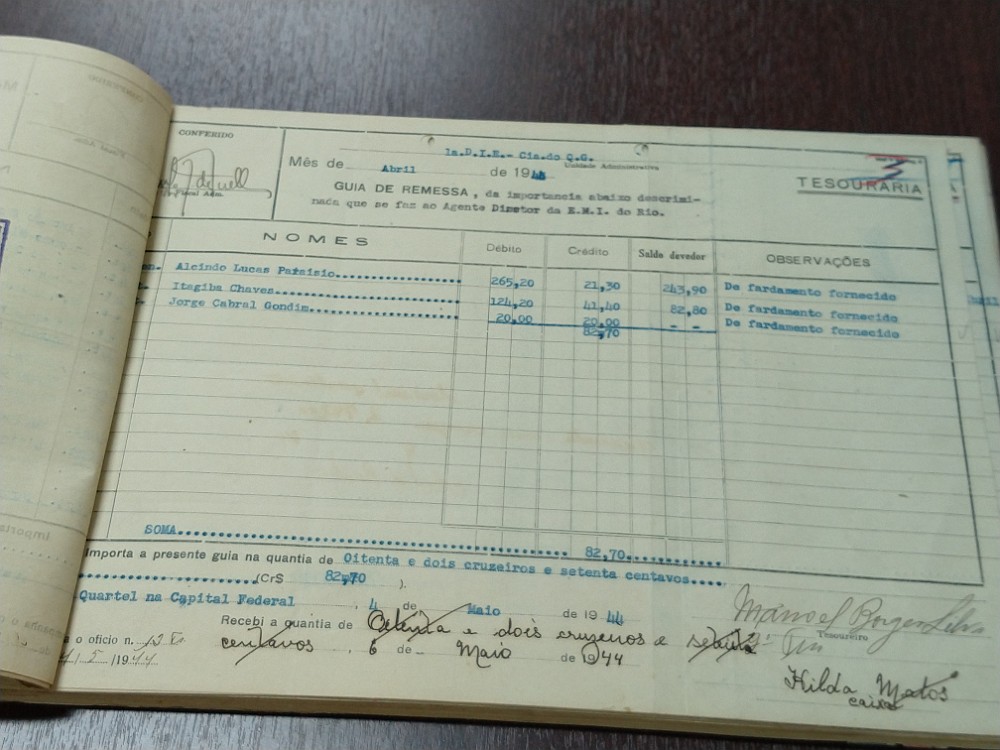 CONFERIDO
1a.D.I.E.- Cia.do Q.G.
Unidade Administrativa
Mês de Abril de 1944
3
TESOURARIA
GUIA DE REMESSA, da importancia abaixo descrimi-
nada que se faz ao Agente Diretor da E.M.I. do Rio.
NOMES Débito Crédito Saldo devedor OBSERVAÇÕES
Alcindo Lucas Paraisio 265,20 21,30 243,90 De fardamento fornecido
Itagiba Chaves 124,20 41,40 82,80 De fardamento fornecido
Jorge Cabral Gondim 20,00 20,00 - - De fardamento fornecido
82,70
SOMA 82,70
Importa a presente guia na quantia de Oitenta e dois cruzeiros e setenta centavos
(Cr$ 82,70 ).
Quartel na Capital Federal , 4 de Maio de 1944
Recebi a quantia de Oitenta e dois cruzeiros e setenta
Tesoureiro
centavos , 6 de Maio de 1944
o oficio n.
5/1944
Hilda Matos
caixa